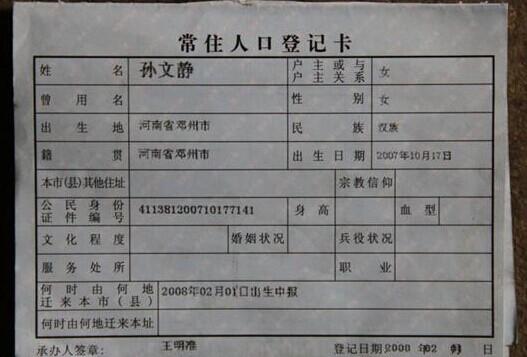 常住人口登记卡
姓名 孙文静 户主或与户主关系 女
曾用名 性别 女
出生地 河南省邓州市 民族 汉族
籍贯 河南省邓州市 出生日期 2007年10月17日
本市(县)其他住址 宗教信仰
公民身份证件编号 411381200710177141 身高 血型
文化程度 婚姻状况 兵役状况
服务处所 职业
何时由何地迁来本市(县) 2008年02月01日出生申报
何时由何地迁来本址
承办人签章: 王明准 登记日期 2008 年 02 月 日